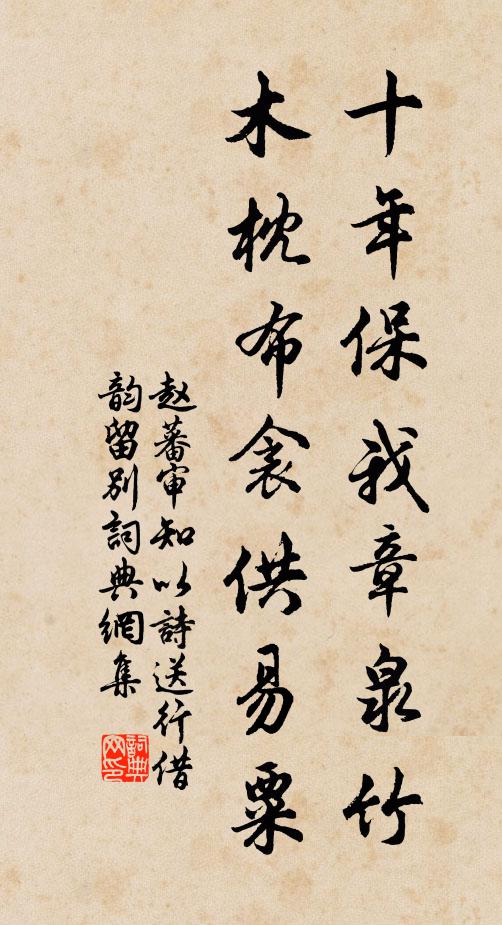 十年保我章泉竹
木枕布衾供易粟
赵蕃审知以詩送行借
韵留别詞典網集
詞典
网印